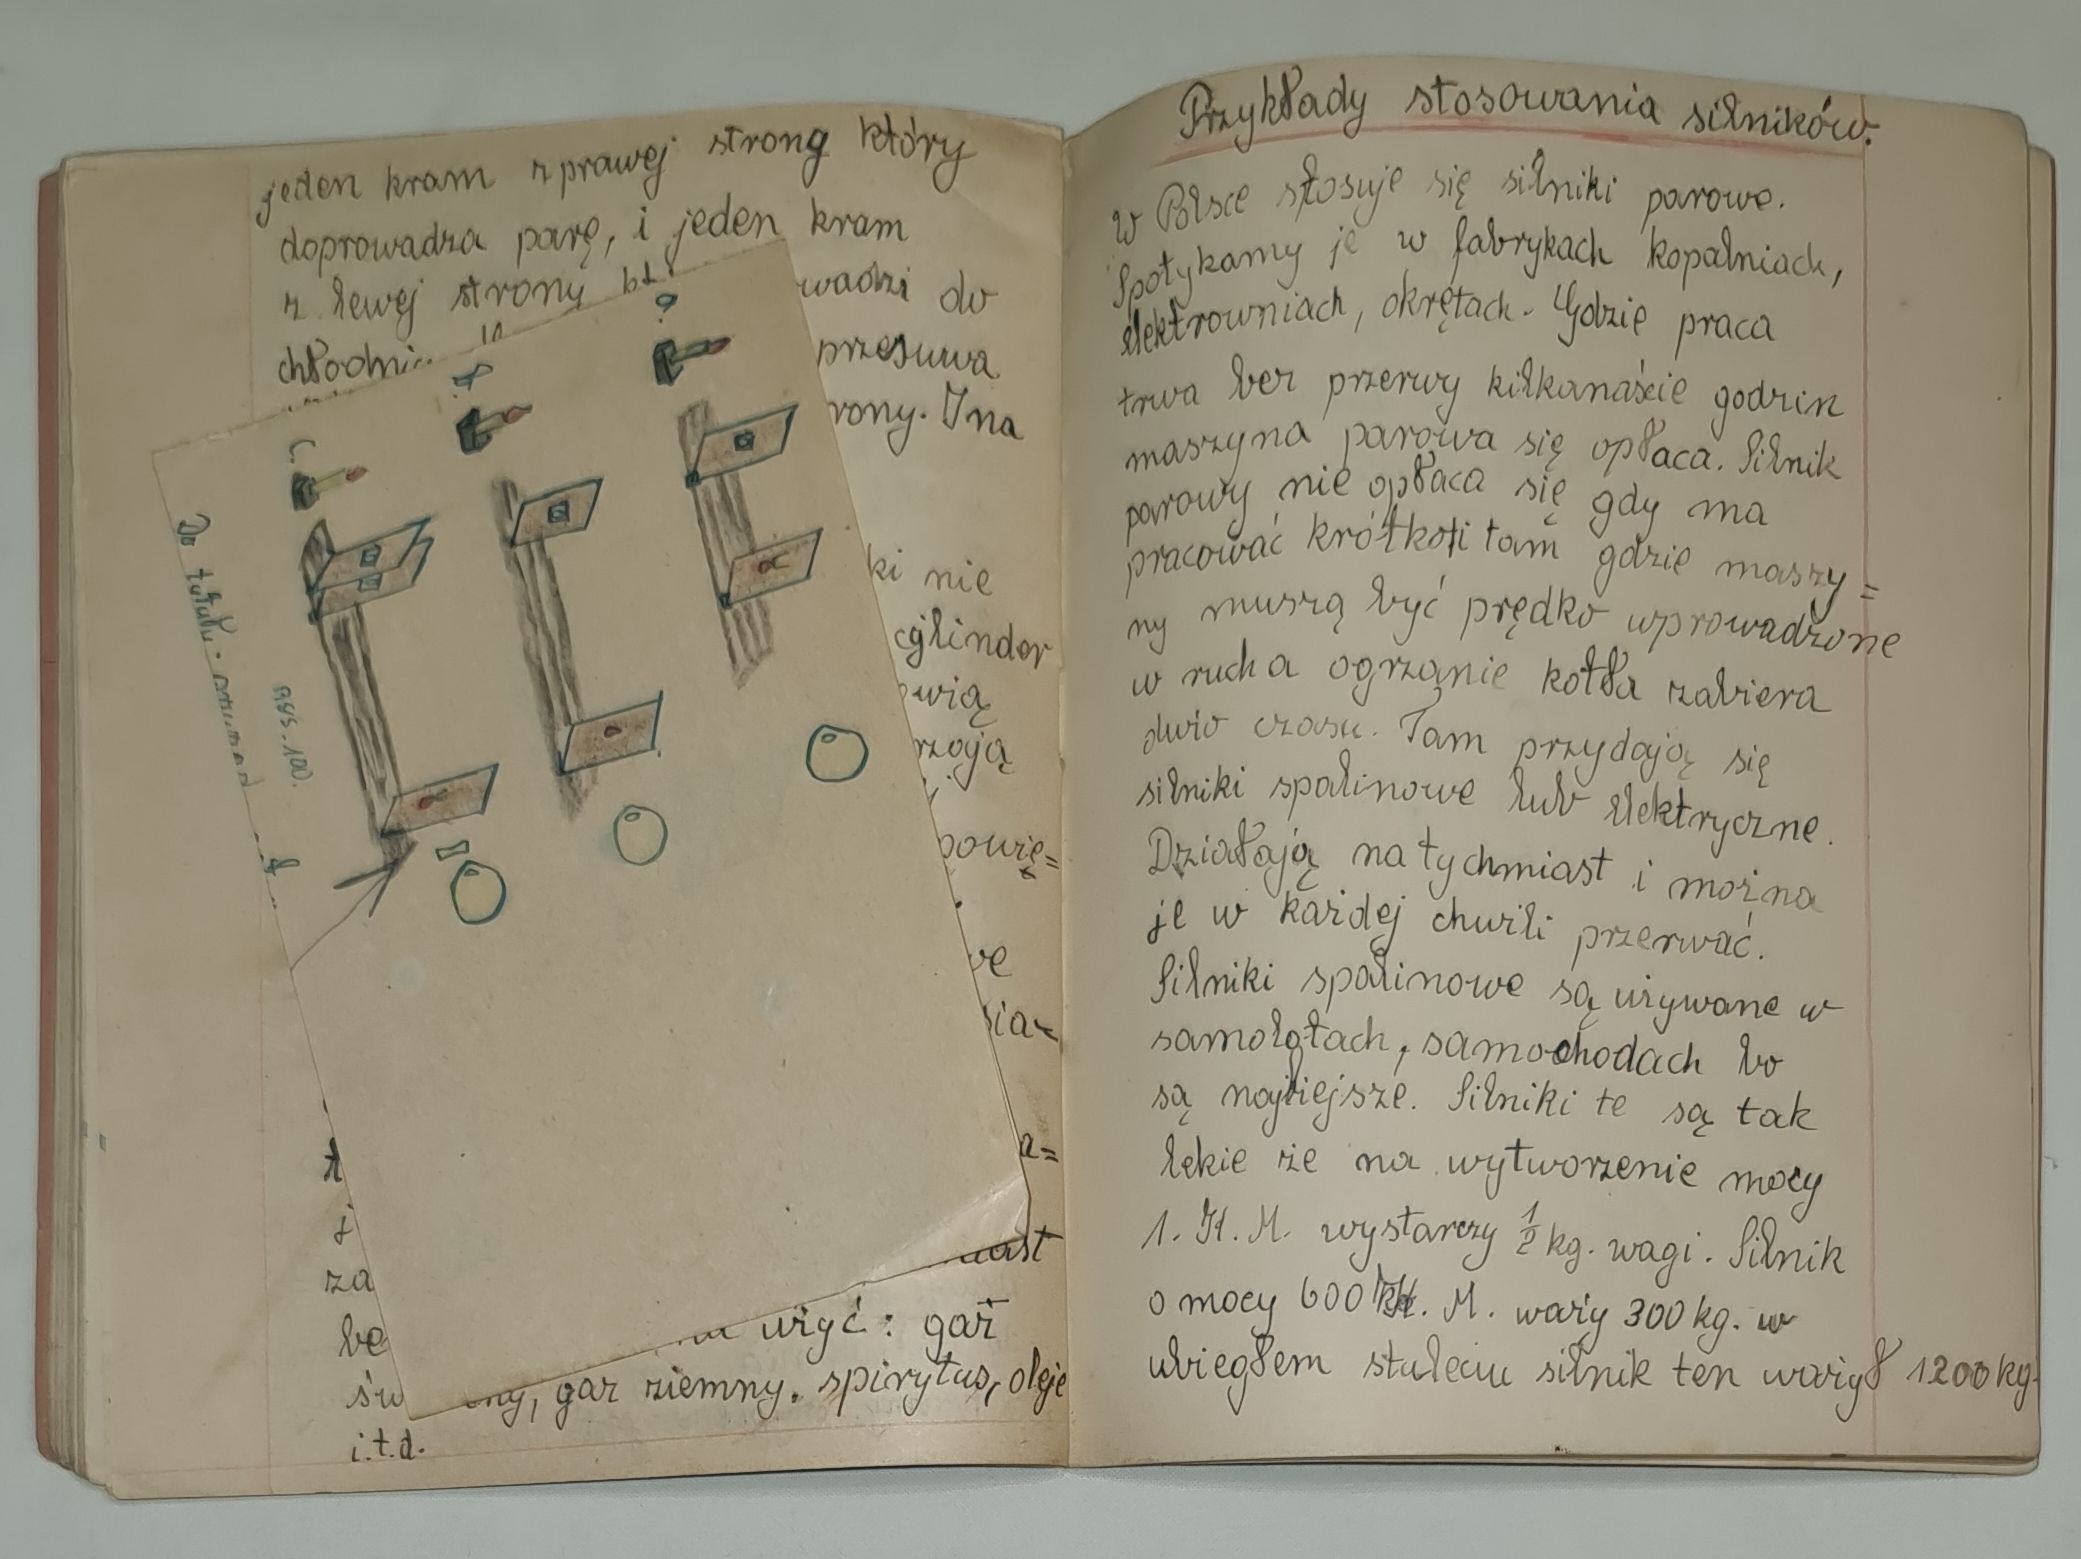 jeden kram z prawej strony który
doprowadza parę, i jeden kram
z lewej strony wadzi do
chłodni przesuwa
rony. I na
ki nie
cylinder
wią
rzają
powię=
we
sia-
a=
t
i iast
za
be użyć: gaz
św ny, gaz ziemny, spirytus, oleje
i.t.d.
a.
b.
c.
Rys. 100.
Przykłady stosowania silników.
W Polsce stosuje się silniki parowe.
Spotykamy je w fabrykach kopalniach,
elektrowniach, okrętach. Gdzie praca
trwa bez przerwy kilkanaście godzin
maszyna parowa się opłaca. Silnik
parowy nie opłaca się gdy ma
pracować krótko i tam gdzie maszy=
ny muszą być prędko wprowadzone
w ruch a ogrzanie kotła zabiera
dużo czasu. Tam przydają się
silniki spalinowe lub elektryczne.
Działają natychmiast i można
je w każdej chwili przerwać.
Silniki spalinowe są używane w
samolotach, samochodach bo
są najlżejsze. Silniki te są tak
lekie że na wytworzenie mocy
1. K. M. wystarczy 1/2 kg. wagi. Silnik
o mocy 600 K. M. waży 300 kg. w
ubiegłem stuleciu silnik ten ważył 1200 kg.